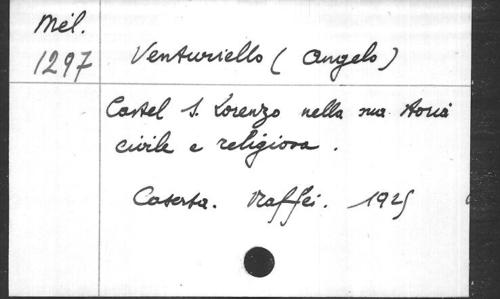 Mél.
1297 Venturiello (Angelo)
Castel S. Lorenzo nella sua storia
civile e religiosa.
Caserta. Maffei. 1925